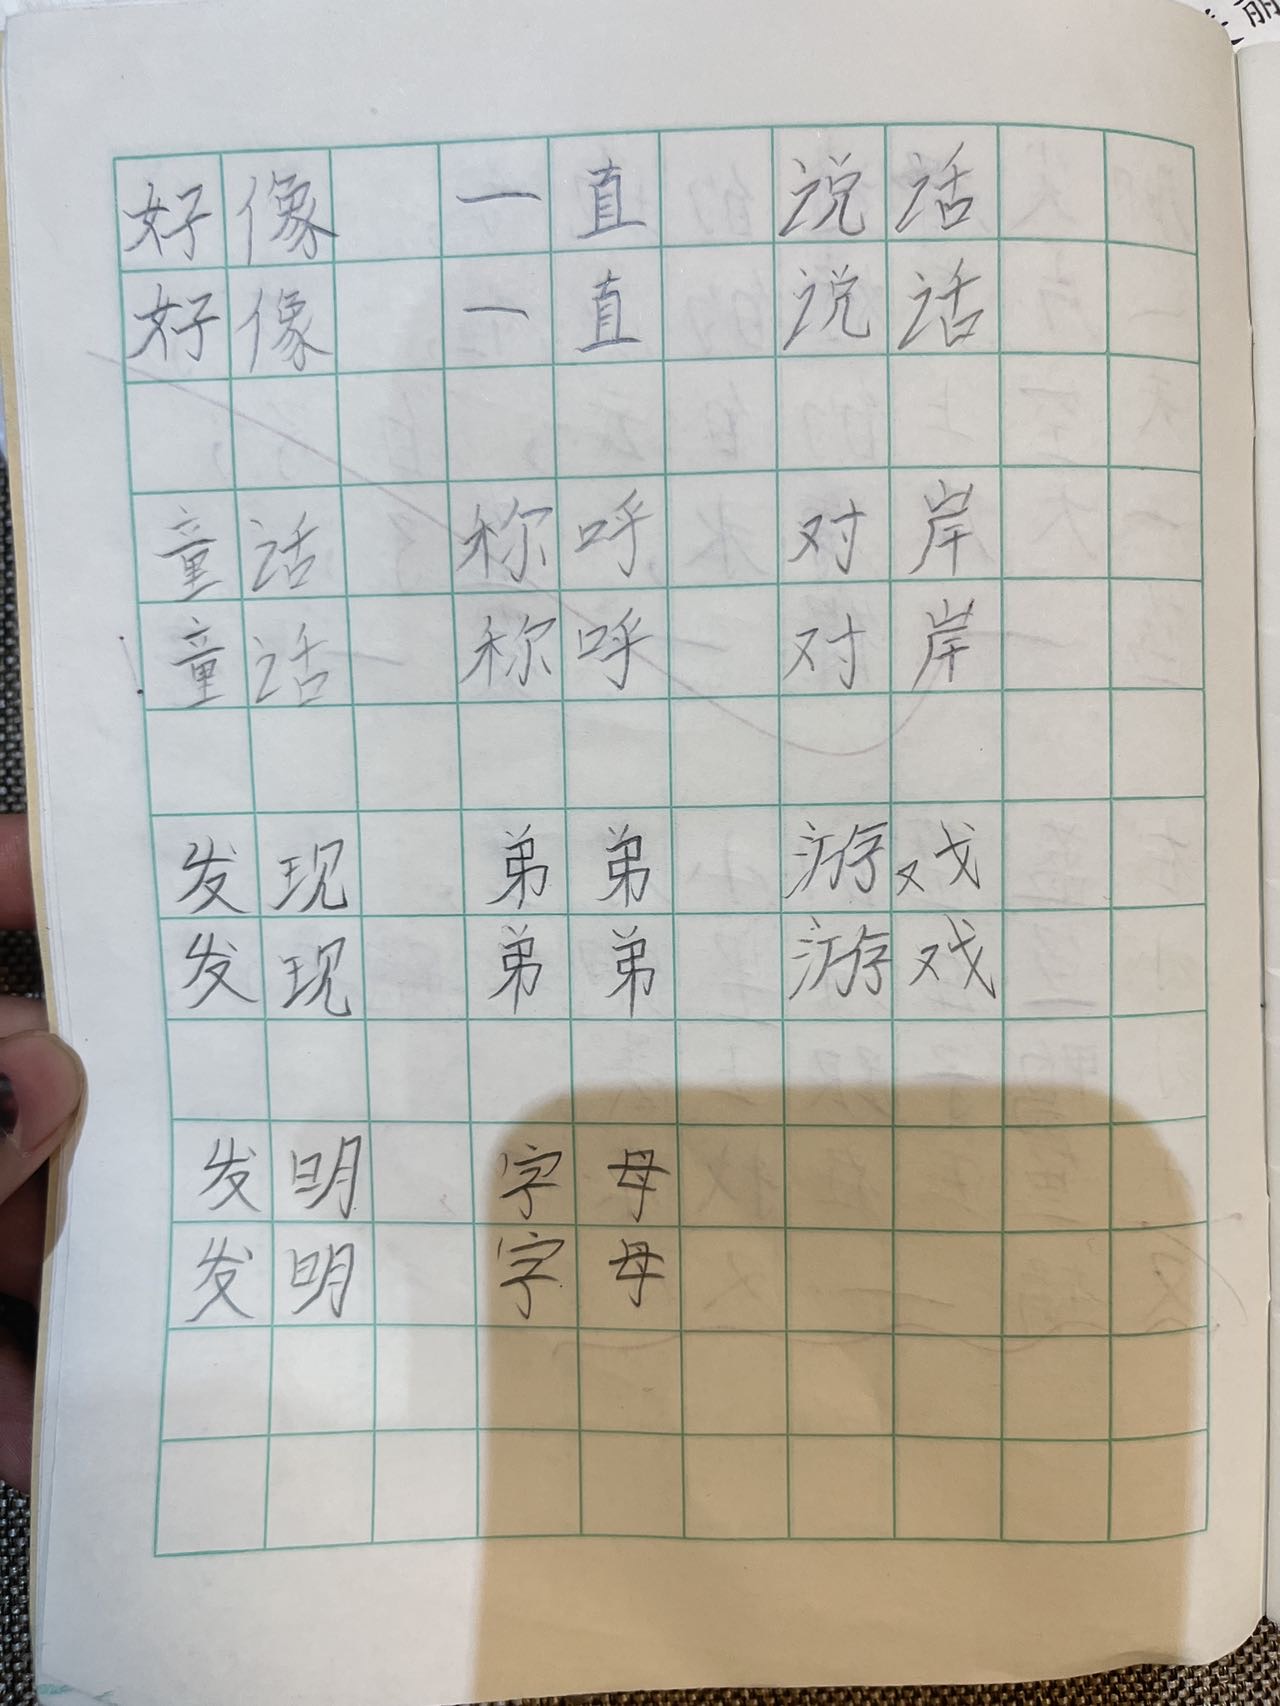 好像 一直 说话
好像 一直 说话
童话 称呼 对岸
童话 称呼 对岸
发现 弟弟 游戏
发现 弟弟 游戏
发明 字母
发明 字母